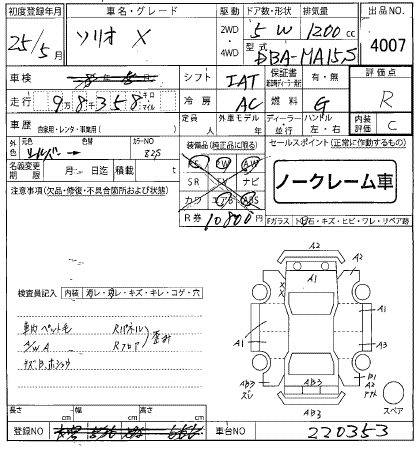 初度登録年月 車名・グレード 駆動 ドア数・形状 排気量 出品NO.
25/5月 ソリオ X 2WD 4WD 5 W 1200cc 4007
型式 DBA-MA15S
車検 シフト IAT 保証書 有・無 評価点 R
走行 9万8千358 キロ マイル 冷房 AC 燃料 G 内装評価 C
車歴 自家用・レンタ・事業用( ) 定員 人 外車モデル 年 ディーラー・並行 ハンドル 左・右
外色 元色 シルバー 色替 カラーNO 825 装備品(純正品に限る) セールスポイント(正常に作動するもの)
名義変更期限 月 日迄 積載 t PS PW AW
SR TV ナビ
カワ エアB ABS
ノークレーム車
注意事項(欠品・修復・不具合箇所および状態) R券 10800円 Fガラス トビ石・キズ・ヒビ・ワレ・リペア跡
検査員記入 内装 汚レ・凹レ・キズ・キレ・コゲ・穴
車内ペット毛 Rパネル
A/W A Rフロア 歪計
キズ、凹、ホシュウ
A2
A1
A2
A1
A1
A3
AB3 ズレ
AB3
B1
A2
AB3
スペア
長さ cm 幅 cm 高さ cm
登録NO 車台NO 220353